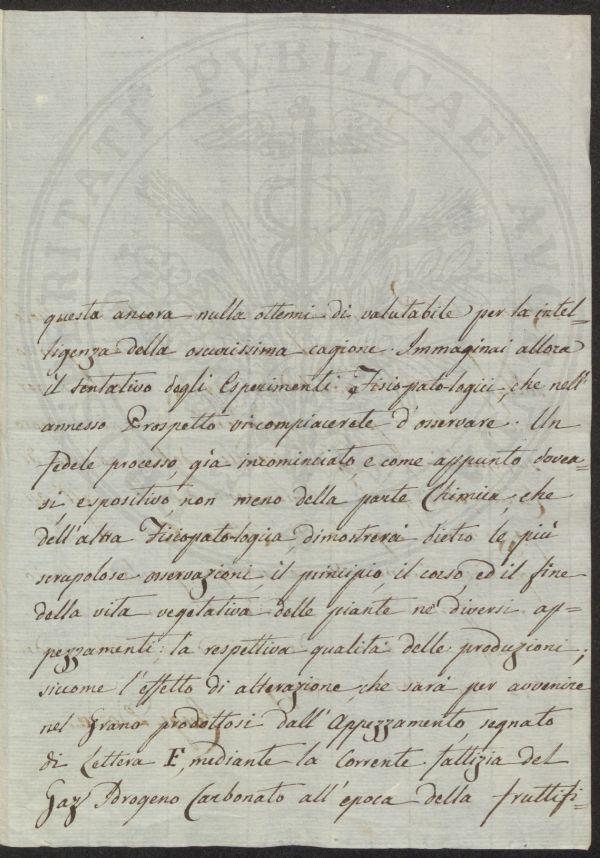 questa ancora nulla ottenni di valutabile per la intel=
ligenza della oscurissima cagione. Immaginai allora
il tentativo degli Esperimenti Fisio-pato-logici, che nell'
annesso Prospetto vi compiacerete d'osservare. Un
fedele processo, già incominciato, e come appunto dovea=
si, espositivo, non meno della parte Chimica, che
dell'altra Fisio-pato-logica, dimostrerà dietro le più
scrupolose osservazioni, il principio, il corso ed il fine
della vita vegetativa delle piante ne' diversi ap=
pezzamenti: la respettiva qualità delle produzioni;
siccome l'effetto di alterazione, che sarà per avvenire
nel Grano prodottosi dall'Appezzamento, segnato
di Lettera F, mediante la Corrente fattizia del
Gaz Idrogeno Carbonato all'epoca della fruttifi=